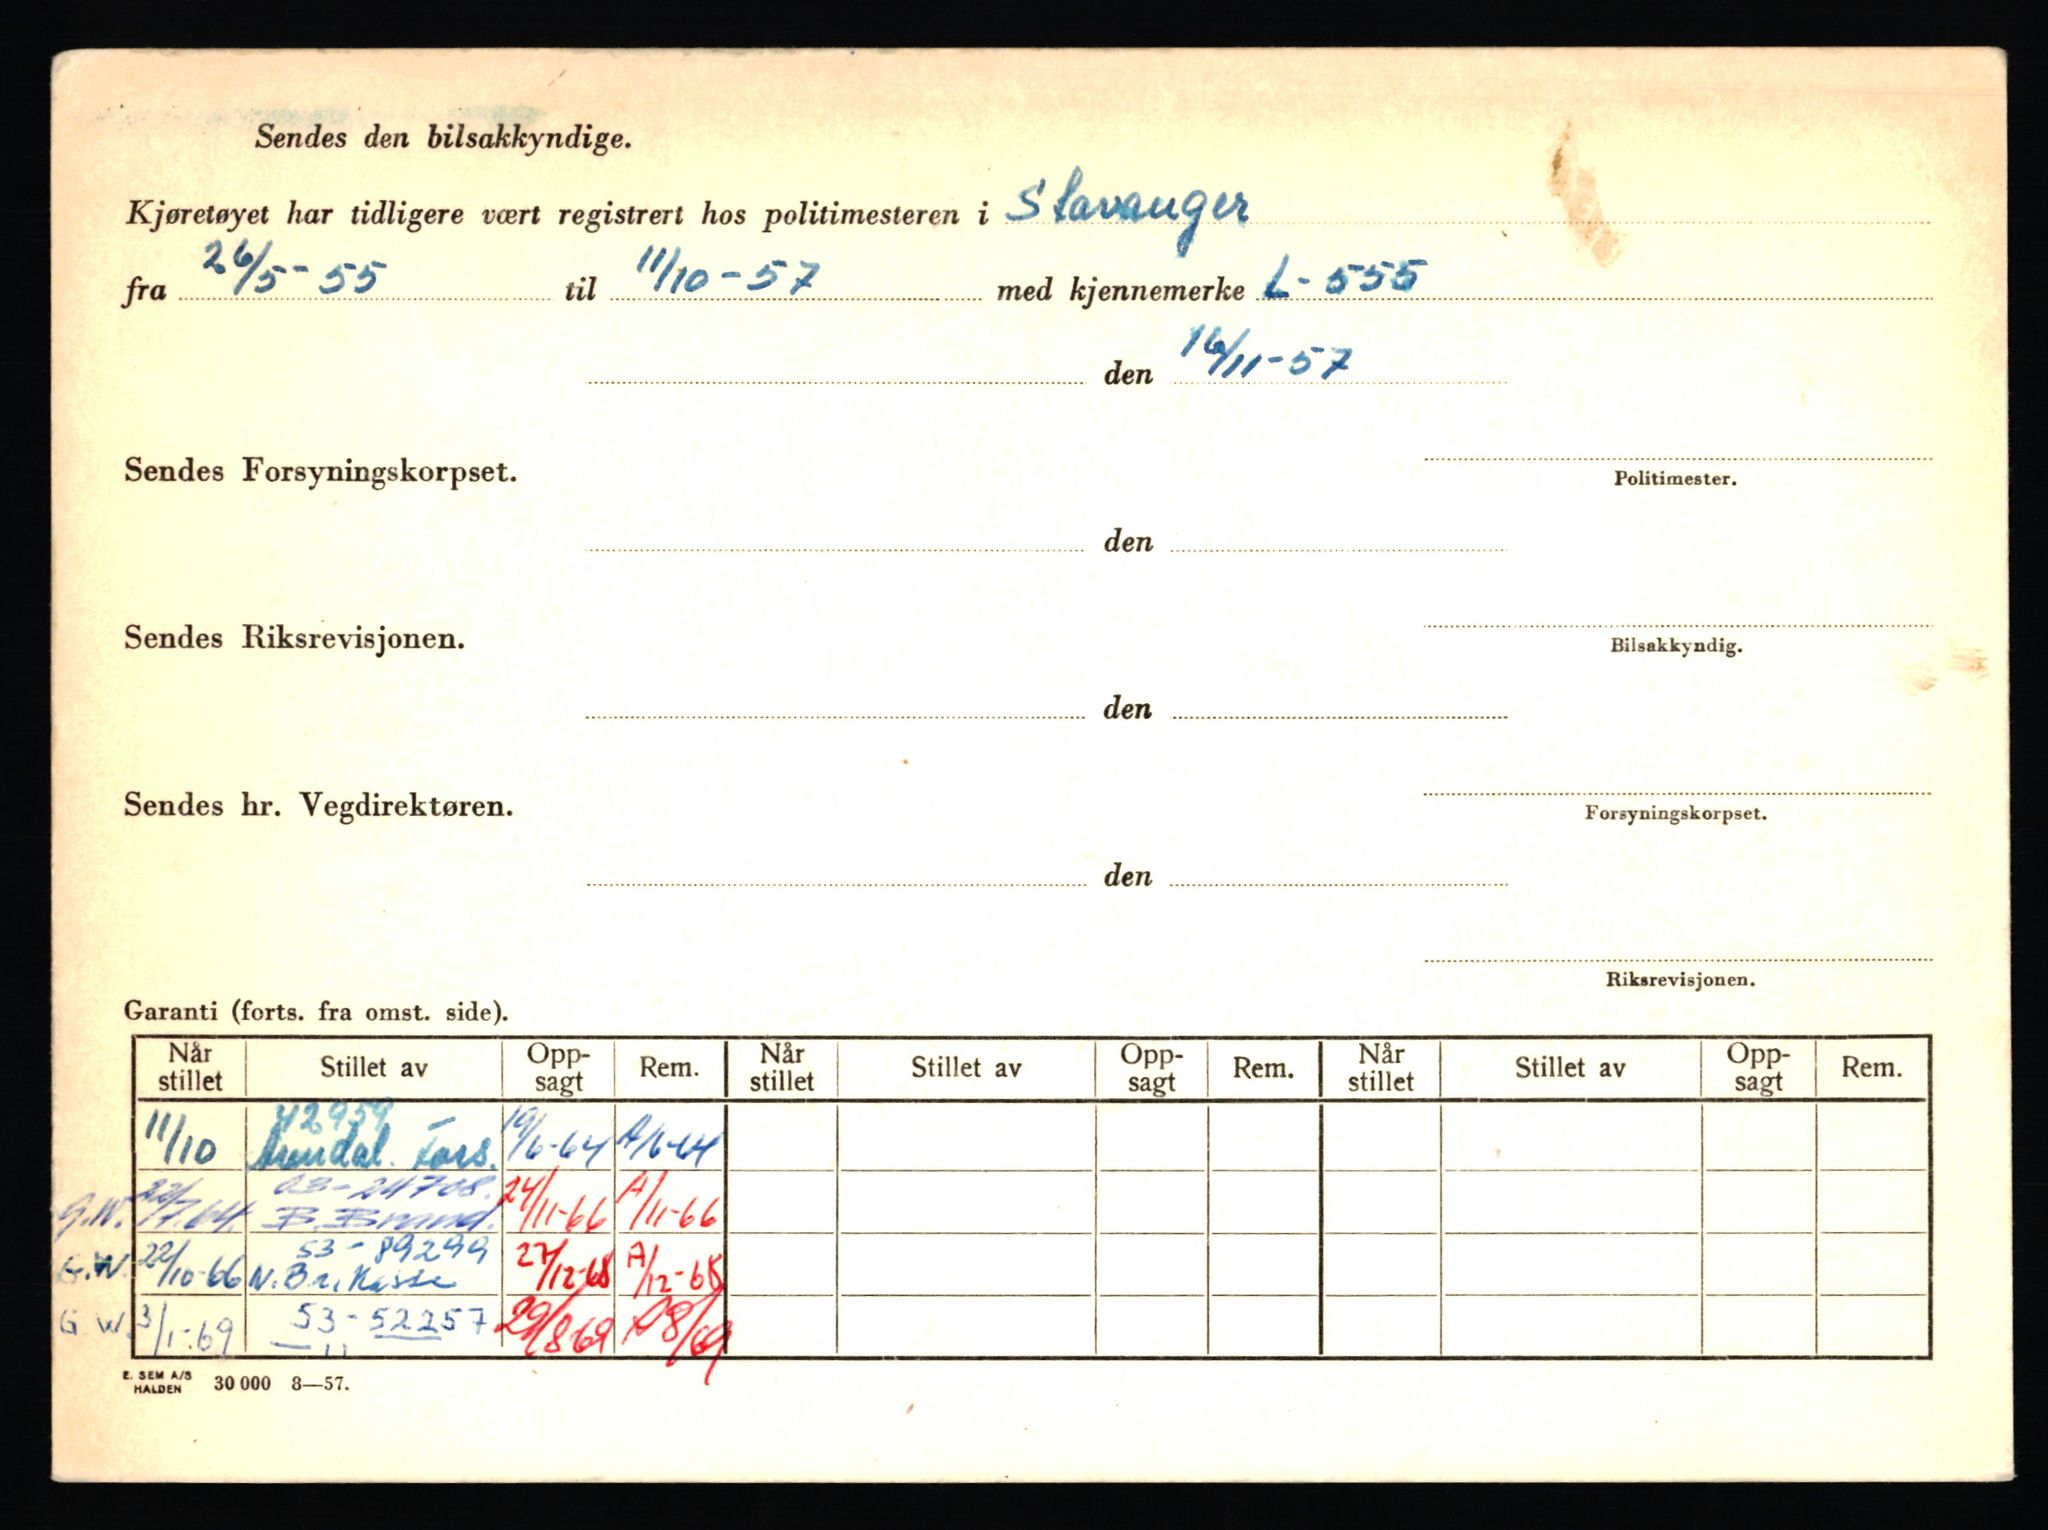 Sendes den bilsakkyndige.
Kjøretøyet har tidligere vært registrert hos politimesteren i Stavanger
fra 26/5-55 til 11/10-57 med kjennemerke L-555
den 16/11-57
Sendes Forsyningskorpset.
Politimester.
den
Sendes Riksrevisjonen.
Bilsakkyndig.
den
Sendes hr. Vegdirektøren.
Forsyningskorpset.
den
Riksrevisjonen.
Garanti (forts. fra omst. side).
Når stillet Stillet av Opp-sagt Rem. Når stillet Stillet av Opp-sagt Rem. Når stillet Stillet av Opp-sagt Rem.
42959
11/10 Arendal. Fors. 19/6-64 A/6-64
03-24708.
G.W. 22/7.64. B. Brand. 24/11-66 A/11-66
53-89299
G.W. 22/10-66 N. Br. Kasse 27/12-68 A/12-68
G.W. 3/1-69 53-52257 29/8-69 8/69
— " —
E. SEM A/S
HALDEN 30 000 8—57.